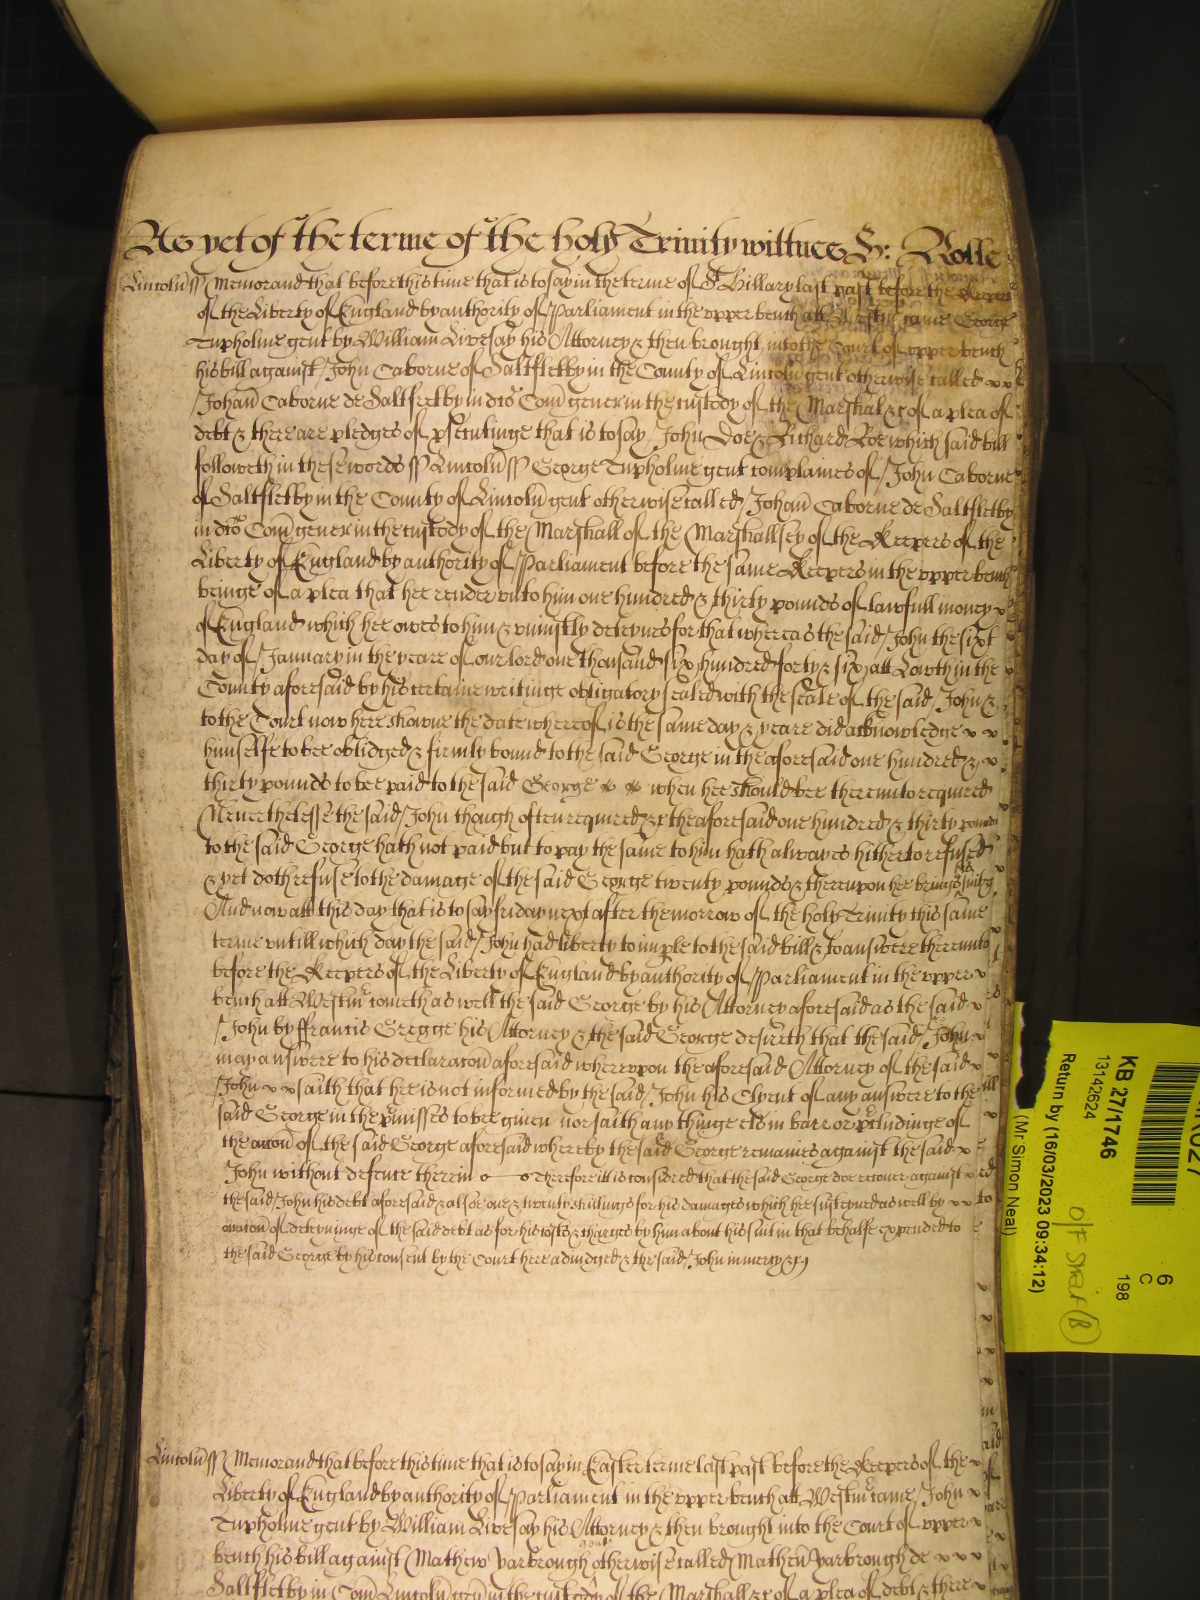 As yet of the terme of the holy Trinity wittnes &: Rolle
Lincoln ss Memorand that before this time that is to say in the terme of St Hillary last past before the Keepers
of the Liberty of England by authority of Parliament in the upper bench att Westmr came George
Tupholme gent by William Livesay his Attorney & then brought into the Court of upper bench
his bill against John Caborne of Saltfletby in the County of Lincoln gent otherwise called
Johan Caborne de Saltfletby in dco Com gener in the custody of the Marshal &c of a plea of
debt & there are pledges of psecutinge that is to say John Doe & Richard Roe which said bill
followeth in these words ss Lincoln ss George Tupholme gent complaines of John Caborne
of Saltfletby in the County of Lincoln gent otherwise called Johan Caborne de Saltfletby
in dco Com gener in the custody of the Marshall of the Marshallsey of the Keepers of the
Liberty of England by authority of Parliament before the same Keepers in the upper bench
beinge of a plea that hee render unto him one hundred & thirty pounds of lawfull money
of England which hee owes to him & uniustly deteynes for that whereas the said John the sixt
day of January in the yeare of our lord one thousand six hundred forty & six att Lowth in the
County aforesaid by his certaine writinge obligatory sealed with the seale of the said John &
to the Court now here showne the date whereof is the same day & yeare did acknowledge
himselfe to bee oblidged & firmly bound to the said George in the aforesaid one hundred &
thirty pounds to bee paid to the said George when hee should bee thereunto required
Neverthelesse the said John though often required &c the aforesaid one hundred & thirty pounds
to the said George hath not paid but to pay the same to him hath alwayes hitherto refused
& yet doth refuse to the damage of the said George twenty pounds & thereupon hee brings his suite &c
And now att this day that is to say friday next after the morrow of the holy Trinity this same
terme untill which day the said John had liberty to imple to the said bill & to answere thereunto
before the Keepers of the Liberty of England by authority of Parliament in the upper
bench att Westmr cometh as well the said George by his Attorney aforesaid as the said
John by ffrancis Gregge his Attorney & the said George desireth that the said John
may answere to his declaracon aforesaid whereupon the aforesaid Attorney of the said
John saith that hee is not informed by the said John his Clyent of any answere to the
said George in the pmisses to bee given nor saith any thinge els in barr or pcludinge of
the accon of the said George aforesaid whereby the said George remaines against the said
John without defence therein Therefore it is considered that the said George doe recover against
the said John his debt aforesaid & alsoe one & twenty shillings for his damages which hee susteyned as well by
occacion of deteyninge of the said debt as for his costs & charges by him about his suit in that behalfe expended to
the said George by his consent by the Court here adiudged & the said John in mercy &c
Lincoln ss Memorand that before this time that is to say in Easter terme last past before the Keepers of the
Liberty of England by authority of Parliament in the upper bench att Westmr came John
Tupholme gent by William Livesay his Attorney & then brought into the Court of upper
bench his bill against Mathew Yarbrough gent otherwise called Mathew Yarbrough de
Saltfletby in Com Lincoln gen in the custody of the Marshall &c of a plea of debt & there
KB 27/1746
13142624
Return by (16/03/2023 09:34:12)
(Mr Simon Neal)
6
C
198